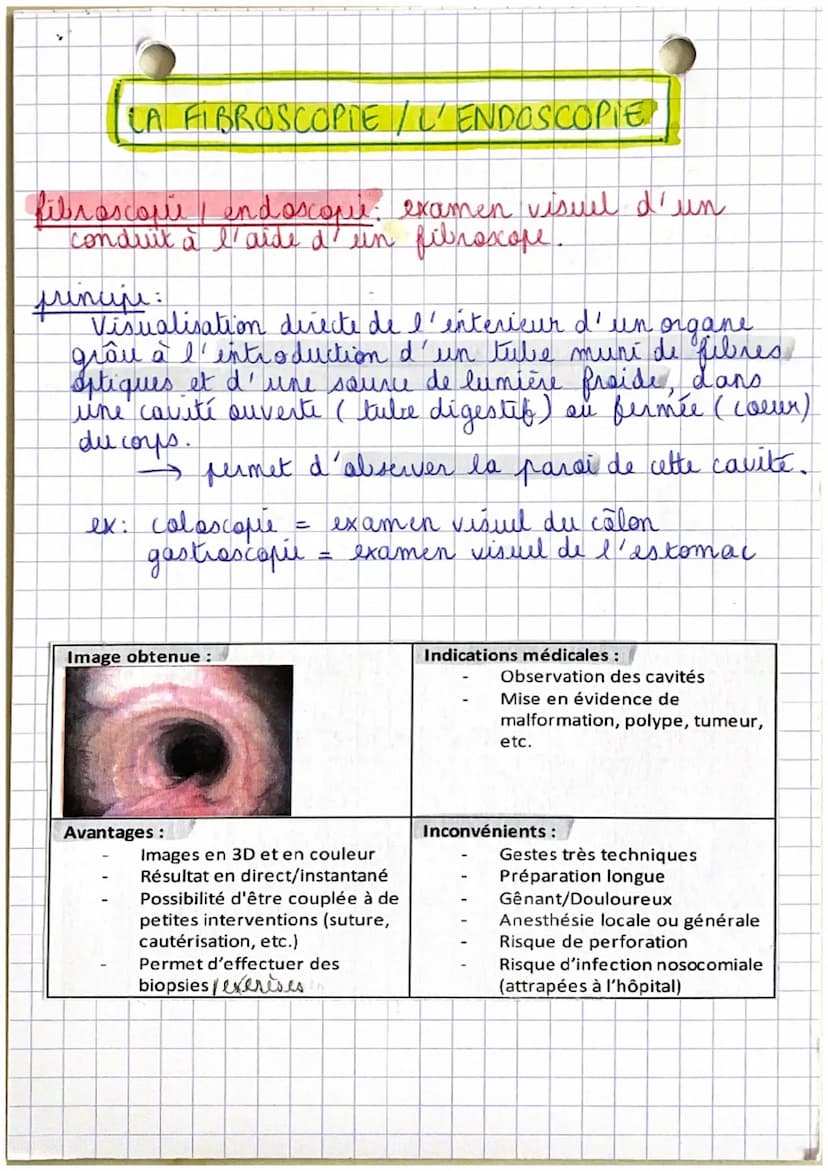 LA FIBROSCOPIE / L'ENDOSCOPIE
fibroscopie / endoscopie: examen visuel d'un
conduit à l'aide d'un fibroscope.
principe:
Visualisation directe de l'interieur d'un organe
grâce à l'introduction d'un tube muni de fibres
optiques et d'une source de lumière froide, dans
une cavité ouverte (tube digestif) ou fermée (coeur)
du corps.
→ permet d'observer la paroi de cette cavité.
ex: coloscopie = examen visuel du côlon
gastroscopie = examen visuel de l'estomac
Image obtenue :
Indications médicales :
- Observation des cavités
- Mise en évidence de
malformation, polype, tumeur,
etc.
Avantages :
- Images en 3D et en couleur
- Résultat en direct/instantané
- Possibilité d'être couplée à de
petites interventions (suture,
cautérisation, etc.)
- Permet d'effectuer des
biopsies / exérèses
Inconvénients :
- Gestes très techniques
- Préparation longue
- Gênant/Douloureux
- Anesthésie locale ou générale
- Risque de perforation
- Risque d'infection nosocomiale
(attrapées à l'hôpital)